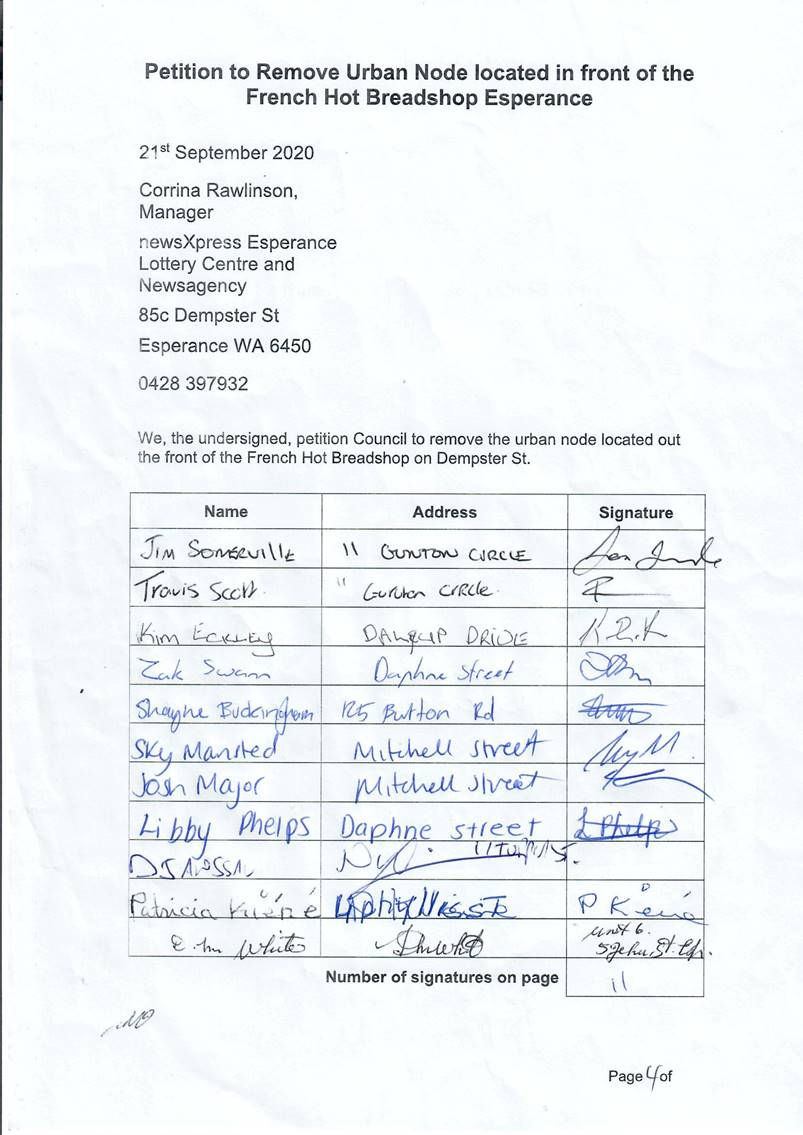 Petition to Remove Urban Node located in front of the
French Hot Breadshop Esperance
21st September 2020
Corrina Rawlinson,
Manager
newsXpress Esperance
Lottery Centre and
Newsagency
85c Dempster St
Esperance WA 6450
0428 397932
We, the undersigned, petition Council to remove the urban node located out
the front of the French Hot Breadshop on Dempster St.
Name Address Signature
JIM SOMERVILLE 11 GUNTON CIRCLE
Travis Scott " Gunton CIRCLE
Kim Eckley DRIVE
Zak Swann Daphne Street
Shayne Buckingham 125 Button Rd
Sky Mansted Mitchell Street
Josh Major Mitchell street
Libby Phelps Daphne street L Phelps
Patricia P
White Unit 6.
Number of signatures on page 11
Page 4 of